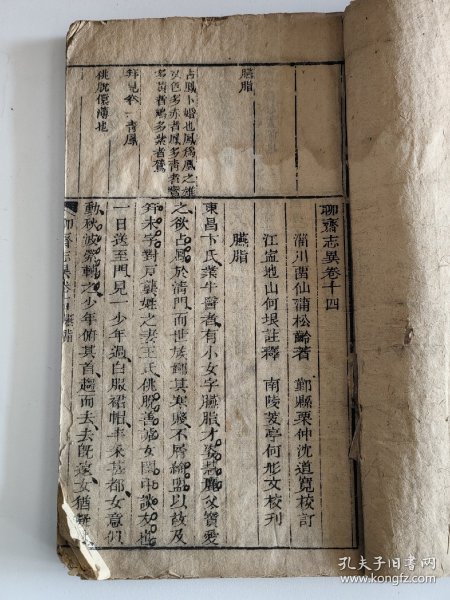 聊齋志異卷十四
淄川 留仙 蒲松齡 著 鄞縣 栗仲 沈道寬 校訂
江寍 地山 何垠 註釋 南陵 芰亭 何彤文 校刊
臙脂
東昌卞氏業牛醫者有小女字臙脂才姿惠麗父寶愛
之欲占鳳於清門而世族鄙其寒賤不屑締盟以故及
笄未字對戶龔姓之妻王氏佻脫善謔女閨中談友也
一日送至門見一少年過白服裙帽丰采甚都女意似
動秋波縈轉之少年俯其首趨而去去旣遠女猶
臙脂
占鳳卜婚也鳳爲鳳之雄
五色多赤者鳳多青者鸞
笄見卷一青鳳
佻脫儇薄也
聊齋志異卷十四 臙脂
孔夫子旧书网
www.kongfz.com